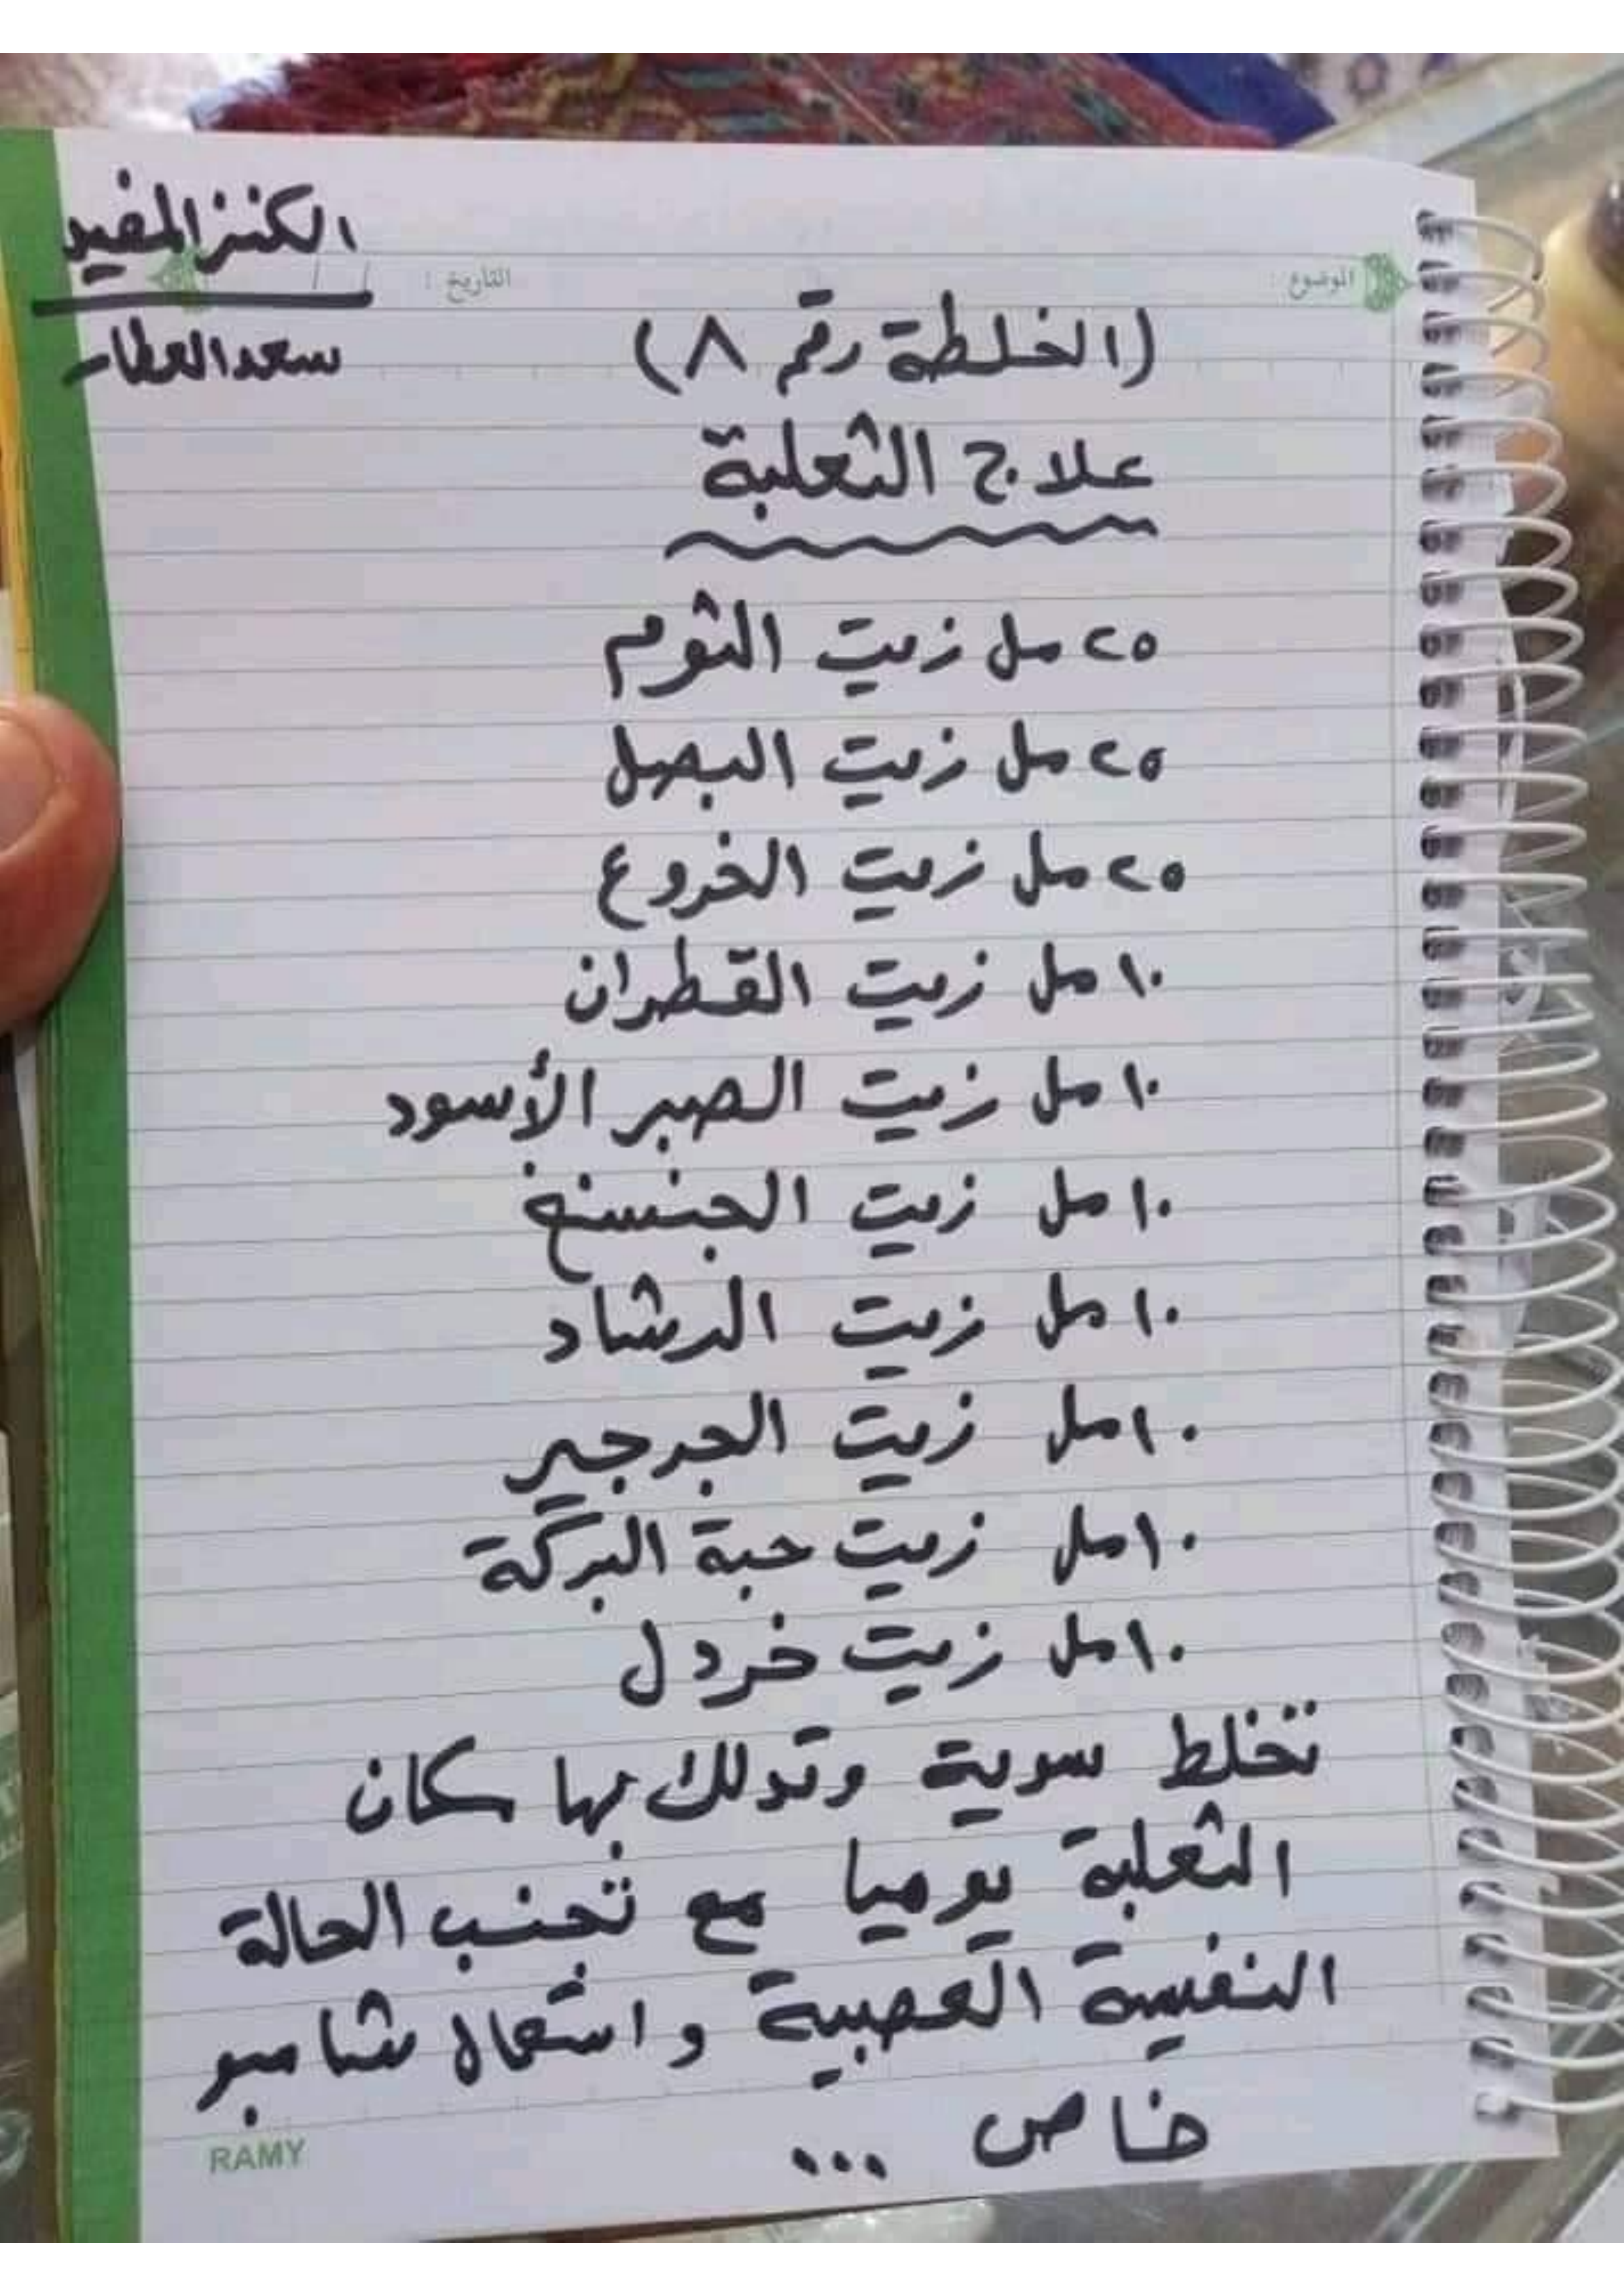 الكنز المفيد
الموضوع : التاريخ : / /
سعد العطار
(الخلطة رقم ٨)
علاج الثعلبة
٢٥ مل زيت الثوم
٢٥ مل زيت البصل
٢٥ مل زيت الخروع
١٠ مل زيت القطران
١٠ مل زيت الصبر الأسود
١٠ مل زيت الجنسنغ
١٠ مل زيت الرشاد
١٠ مل زيت الجرجير
١٠ مل زيت حبة البركة
١٠ مل زيت خردل
تخلط سوية وتدلك بها مكان
الثعلبة يوميا مع تجنب الحالة
النفسية العصبية و استعمال شامبو
خاص ...
RAMY